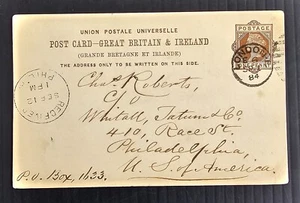 UNION POSTALE UNIVERSELLE
POST CARD-GREAT BRITAIN & IRELAND
(GRANDE BRETAGNE ET IRLANDE)
THE ADDRESS ONLY TO BE WRITTEN ON THIS SIDE.
POSTAGE
LONDON
84
Chas. Roberts,
C/o
Whitall, Tatum & Co.
410, Race St.
Philadelphia,
U. S. of America.
P.O. Box, 1633.
RECEIVED
SEP 12
1 PM
PHIL